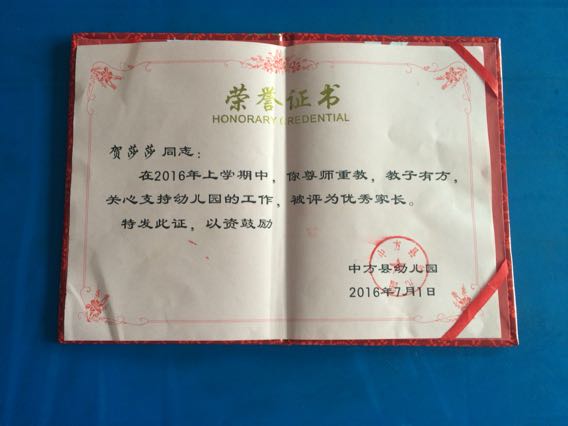 荣誉证书
HONORARY CREDENTIAL
贺莎莎 同志：
在2016年上学期中，你尊师重教，教子有方，
关心支持幼儿园的工作，被评为优秀家长。
特发此证，以资鼓励
中方县幼儿园
2016年7月1日